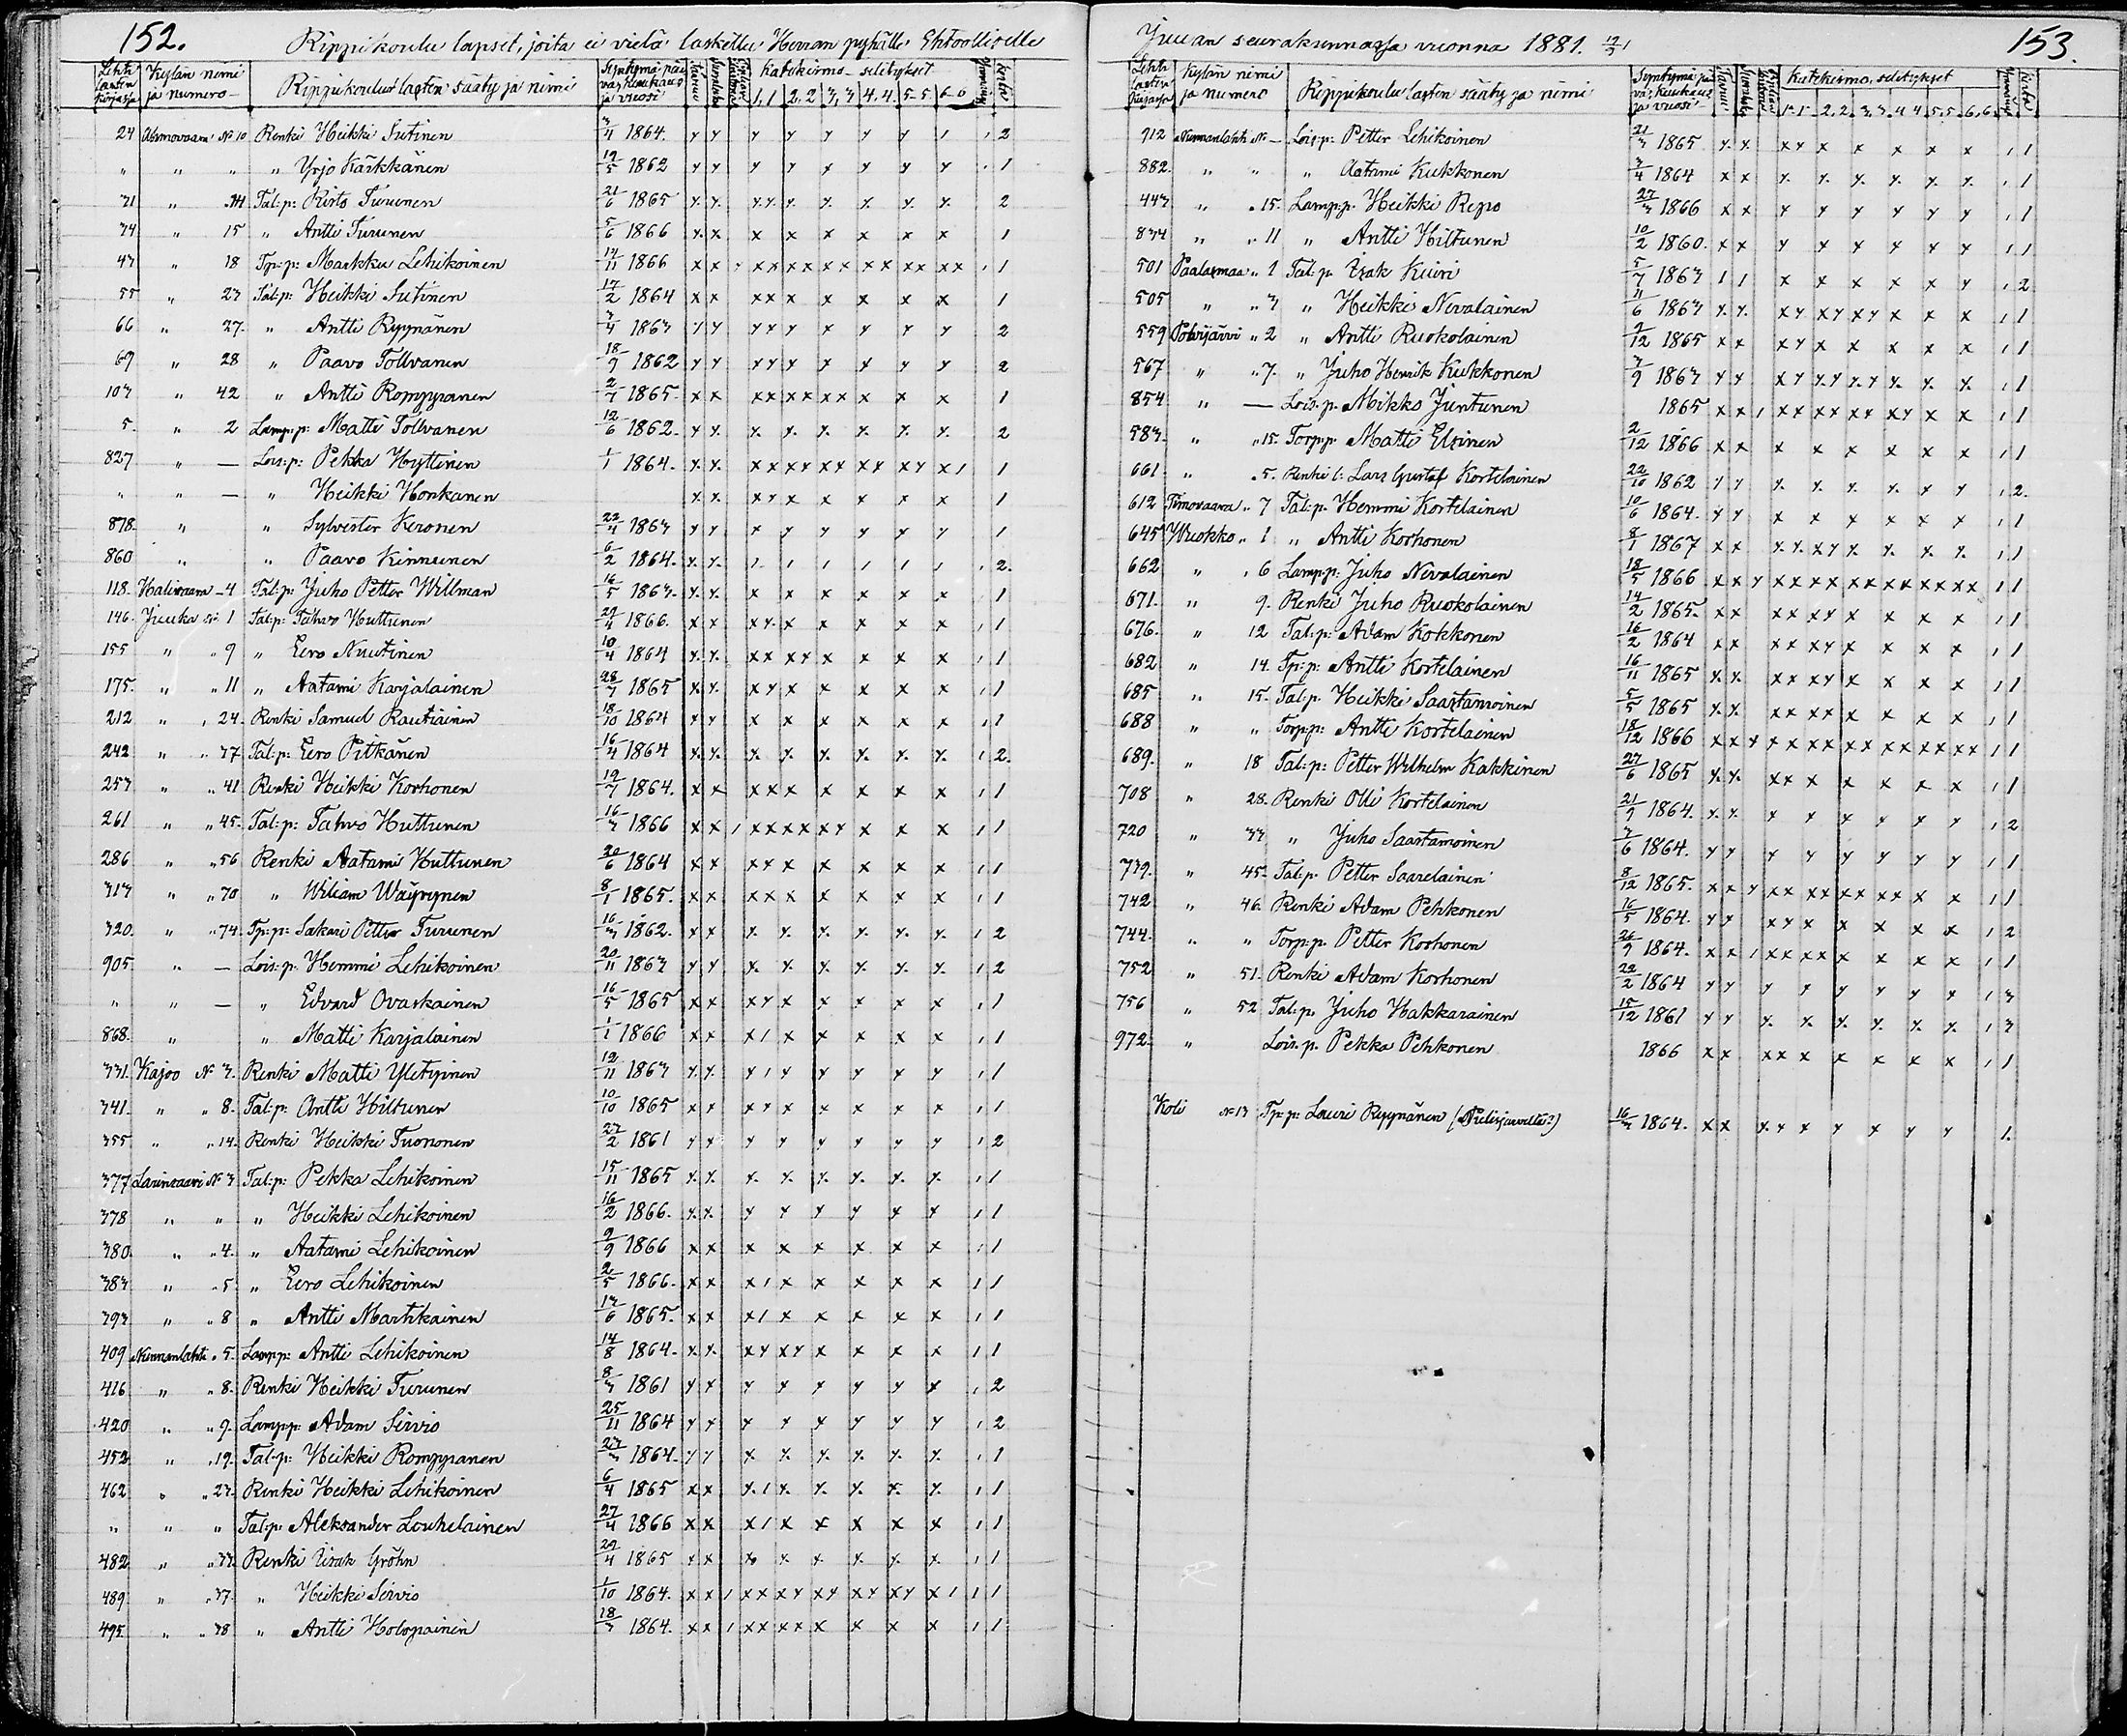 152.
Rippikoulu lapset, joita ei vielä laskettu Herran pyhälle Ehtoolliselle
Lehti lasten kirjassa Kylän nimi ja numero Rippikoulu lasten sääty ja nimi Syntymä päivä, kuukaus ja vuosi Katekismo-selitykset 1,1 2,2 3,3 4.4. 5-5 6-6
24 Ahmovaara № 10 Renki Heikki Sutinen 3/4 1864. 2
„ „ „ „ Yrjö Kärkkänen 19/5 1862 1
31 „ 14 Tal:p: Risto Turunen 21/6 1865 2
34 „ 15 „ Antti Turunen 5/6 1866 1
43 „ 18 Tp:p: Markku Lehikoinen 14/11 1866 1
55 „ 23 Tal:p: Heikki Sutinen 17/2 1864 1
66 „ 27. „ Antti Ryynänen 3/4 1863 2
69 „ 28 „ Paavo Tollvanen 18/9 1862 2
103 „ 42 „ Antti Romppanen 2/7 1865. 1
5. „ 2 Lamp:p: Matti Tollvanen 12/6 1862. 2
827 „ — Lois:p: Pekka Hyttinen 1/1 1864. 1
„ „ — „ Heikki Honkanen 1
878. „ „ Sylvester Keronen 22/4 1863 1
860 „ „ Paavo Kinnunen 6/2 1864. 2.
118. Halivaara 4 Tal:p: Juho Petter Willman 16/5 1863. 1
146. Juuka № 1 Tal:p: Tahvo Huttunen 29/4 1866. 1
155 „ „ 9 „ Eero Nuutinen 10/4 1864 1
175. „ „ 11 „ Aatami Karjalainen 28/7 1865 1
212 „ „ 24. Renki Samuel Rautiainen 18/10 1864 1
242 „ „ 37 Tal:p: Eero Pitkänen 16/4 1864 2.
253 „ „ 41 Renki Heikki Korhonen 19/7 1864. 1
261 „ „ 45. Tal:p: Tahvo Huttunen 16/3 1866 1
286 „ „ 56 Renki Aatami Huttunen 20/6 1864 1
313 „ „ 70 „ Wiliam Wäyrynen 8/1 1865. 1
320. „ „ 74. Tp:p: Sakari Petter Turunen 16/3 1862. 2
905 „ — Lois:p. Hemmi Lehikoinen 20/11 1863 2
„ „ — „ Edvard Ovaskainen 16/5 1865 1
868. „ „ Matti Karjalainen 1/1 1866 1
331. Kajoo № 3. Renki Matti Yletyinen 12/11 1863 1
341. „ „ 8. Tal:p: Antti Hiltunen 10/10 1865 1
355 „ „ 14. Renki Heikki Tuononen 23/2 1861 2
377 Larinsaari № 3 Tal:p: Pekka Lehikoinen 15/11 1865 1
378 „ „ „ Heikki Lehikoinen 16/2 1866. 1
380. „ „ 4. „ Aatami Lehikoinen 9/9 1866 1
383 „ „ 5. „ Eero Lehikoinen 2/5 1866. 1
393 „ „ 8 „ Antti Martikainen 13/6 1865. 1
409 Nunnanlahti „ 5. Lamp:p: Antti Lehikoinen 14/8 1864. 1
416 „ „ 8. Renki Heikki Turunen 8/3 1861 2
420 „ „ 9. Lamp:p: Adam Sirvio 25/11 1864 2
452 „ „ 19. Tal:p: Heikki Romppanen 23/3 1864. 1
462 „ „ 23. Renki Heikki Lehikoinen 6/4 1865 1
„ „ „ Tal:p: Aleksander Louhelainen 27/4 1866 1
482 „ „ 33. Renki Isak Gröhn 29/4 1865 1
489 „ „ 37. „ Heikki Sirvio 1/10 1864. 1
495. „ „ 38 „ Antti Holopainen 18/3 1864. 1
Juuan seurakunnassa vuonna 1881.
153.
Lehti lasten kirjassa Kylän nimi ja numero Rippikoulu lasten sääty ja nimi Syntymä päivä, kuukaus ja vuosi Katekismo selitykset 1.1. 2.2. 3.3. 4 4 5.5. 6.6.
912 Nunnanlahti № — Lois:p: Petter Lehikoinen 21/3 1865 1
882. „ „ „ Aatami Kukkonen 3/4 1864 1
443 „ „ 15. Lamp:p. Heikki Repo 27/3 1866 1
834 „ „ 11 „ Antti Hiltunen 10/2 1860. 1
501 Paalasmaa „ 1 Tal:p. Isak Kuiri 5/7 1863 2
505 „ „ 3 „ Heikki Nevalainen 11/6 1863 1
559 Polvijärvi „ 2 „ Antti Ruokolainen 9/12 1865 1
567 „ „ 7. „ Juho Henrik Kukkonen 3/9 1863 1
854 „ — Lois:p. Mikko Juntunen 1865 1
583. „ „ 15. Torp:p. Matti Elsinen 2/12 1866 1
661. „ „ 5. Renki l: Lars Gustaf Kortelainen 22/10 1862 2.
612 Timovaara „ 7 Tal:p. Hemmi Kortelainen 10/6 1864. 1
645 Wuokko „ 1 „ Antti Korhonen 8/1 1867 1
662 „ „ 6 Lamp:p: Juho Nevalainen 18/5 1866 1
671. „ 9. Renki Juho Ruokolainen 14/2 1865. 1
676. „ 12 Tal:p: Adam Kokkonen 16/2 1864 1
682 „ 14. Tp:p: Antti Kortelainen 16/11 1865 1
685 „ 15. Tal:p. Heikki Saastamoinen 5/5 1865 1
688 „ „ Torp:p: Antti Kortelainen 18/12 1866 1
689. „ 18 Tal:p: Petter Wilhelm Kakkinen 27/6 1865 1
708 „ 28. Renki Olli Kortelainen 21/9 1864. 2
720 „ 33 „ Juho Saastamoinen 3/6 1864. 1
739. „ 45. Tal:p. Petter Saarelainen 8/12 1865. 1
742 „ 46. Renki Adam Pehkonen 16/5 1864. 2
744. „ „ Torp:p. Petter Korhonen 26/9 1864. 1
752 „ 51. Renki Adam Korhonen 22/2 1864 3
756 „ 52 Tal:p. Juho Hakkarainen 15/12 1861 3
972. „ Lois:p. Pekka Pehkonen 1866 1
Koli № 13 Tp:p: Lauri Ryynänen (Pielisjärveltä?) 16/3 1864. 1.